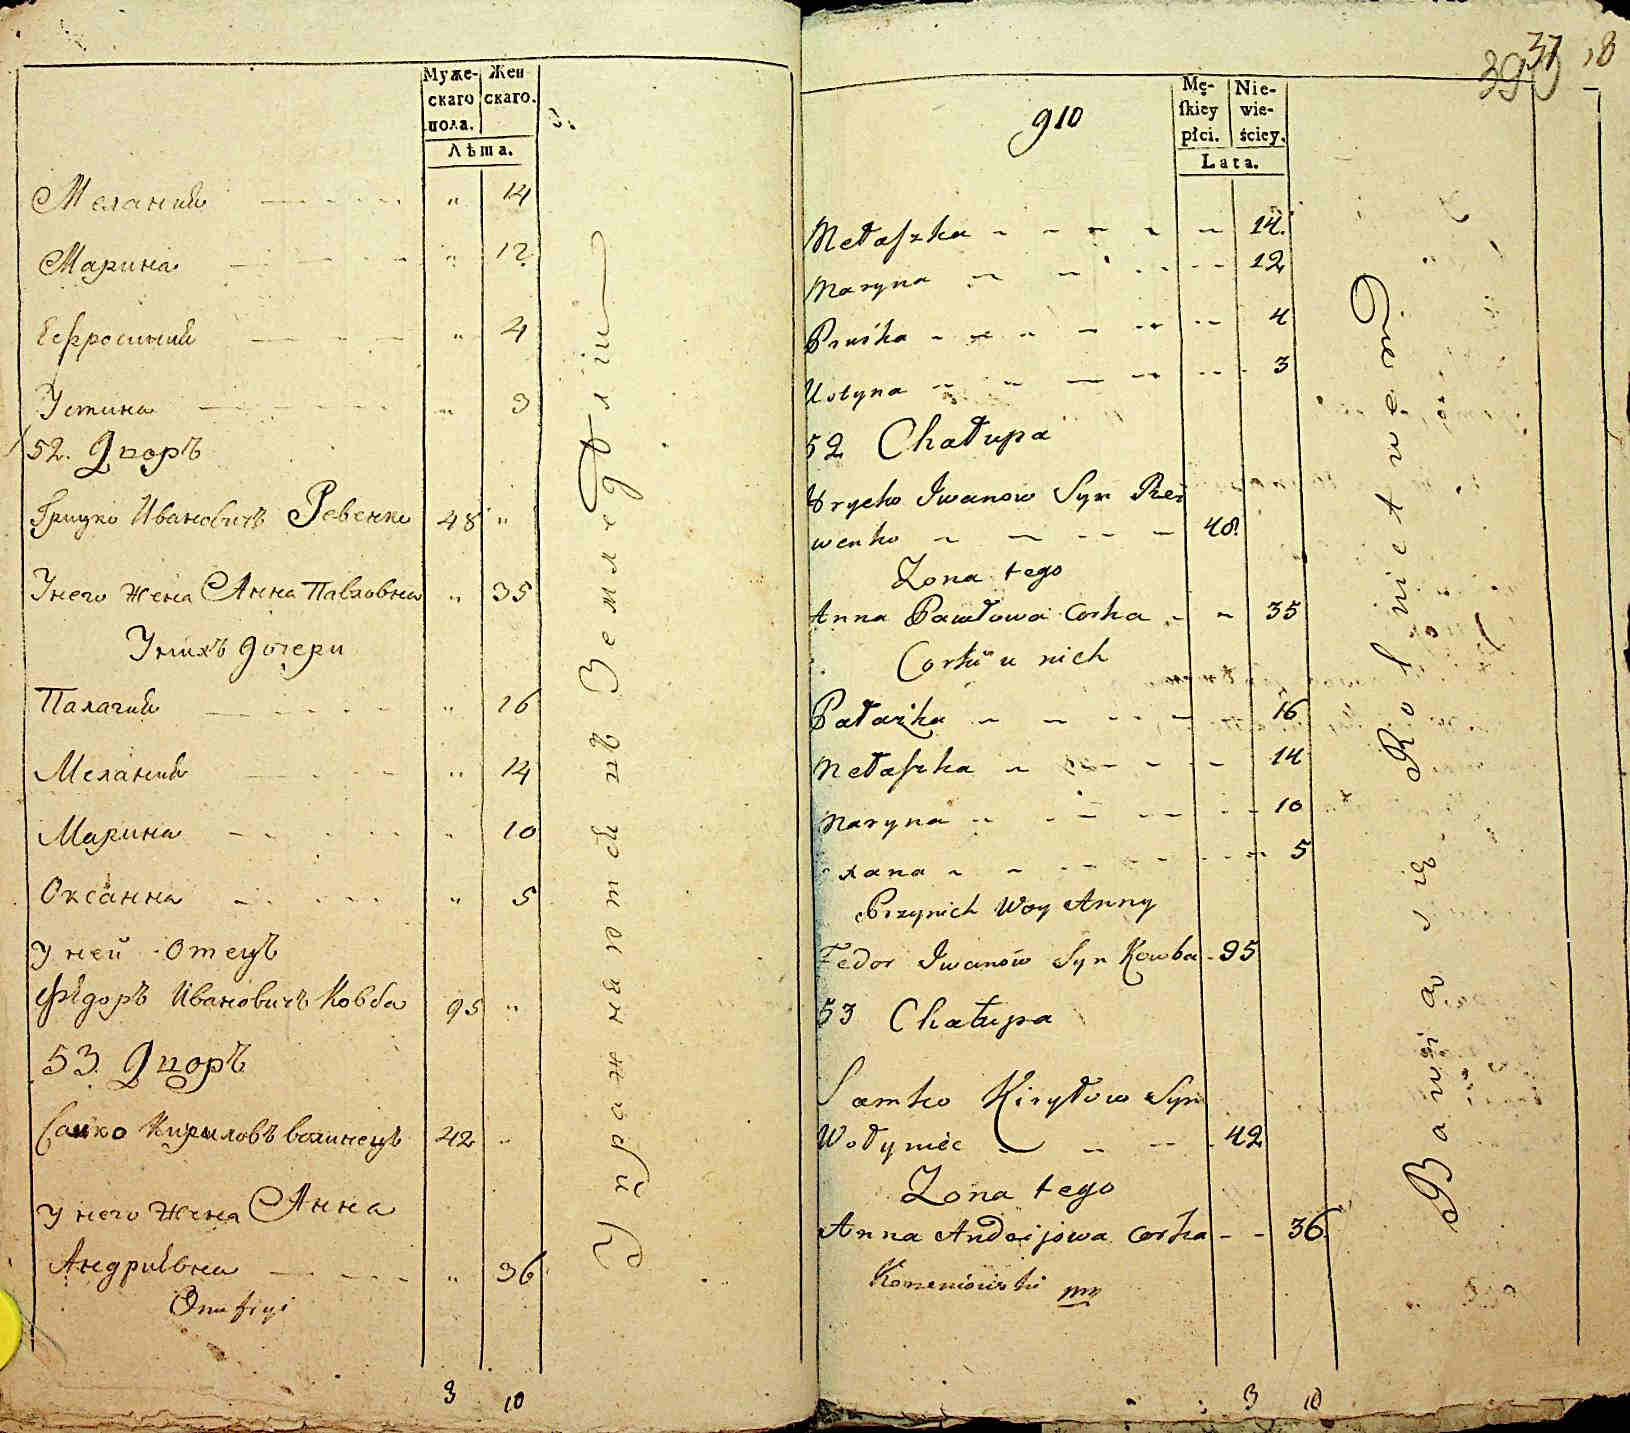 Муже-
скаго
пола.
Жен
скаго.
Лѣта.
Меланий " 14
Марина " 12
Ефросиний " 4
Устина " 3
52. Дворъ
Грицко Ивановичъ Ревенко 48 "
У него жена Анна Павловна " 35
У нихъ дочери
Палагий " 16
Меланий " 14
Марина " 10
Оксанна " 5
У ней Отецъ
Фѣдоръ Ивановичъ Ковба 95 "
53. Дворъ
Самко Кириловъ волинецъ 42 "
У него жена Анна
Андриевна " 36
Onufryi
3 10
Упражняются въ Земледѣліи
37 18
390
910
Mę-
skiey
płci.
Nie-
wie-
ściey.
Lata.
Mełaszka 14
Maryna 12
Pruśka 4
Ustyna 3
52 Chałupa
Hrycko Iwanow Syn Re
wenko 48
Zona tego
Anna Pawłowa Corka 35
Corki u nich
Pałazka 16
Mełaszka 14
Maryna 10
xana 5
Przynich Anny
Fedor Iwanów Syn Kowba 95
53 Chałupa
Samko Kiryłow Syn
Wołyniec 42
Zona tego
Anna Andrijowa Corka 36
mp
3 10
Bawią się Rolnictwem